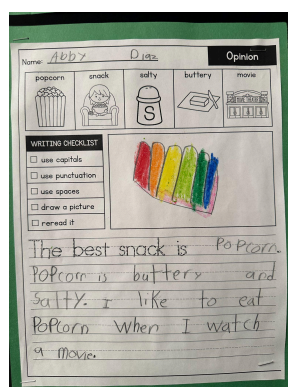 Name: Abby Diaz
Opinion
popcorn snack salty buttery movie
S
WRITING CHECKLIST
use capitals
use punctuation
use spaces
draw a picture
reread it
The best snack is Popcorn.
Popcorn is buttery and
salty. I like to eat
Popcorn when I watch
a movie.